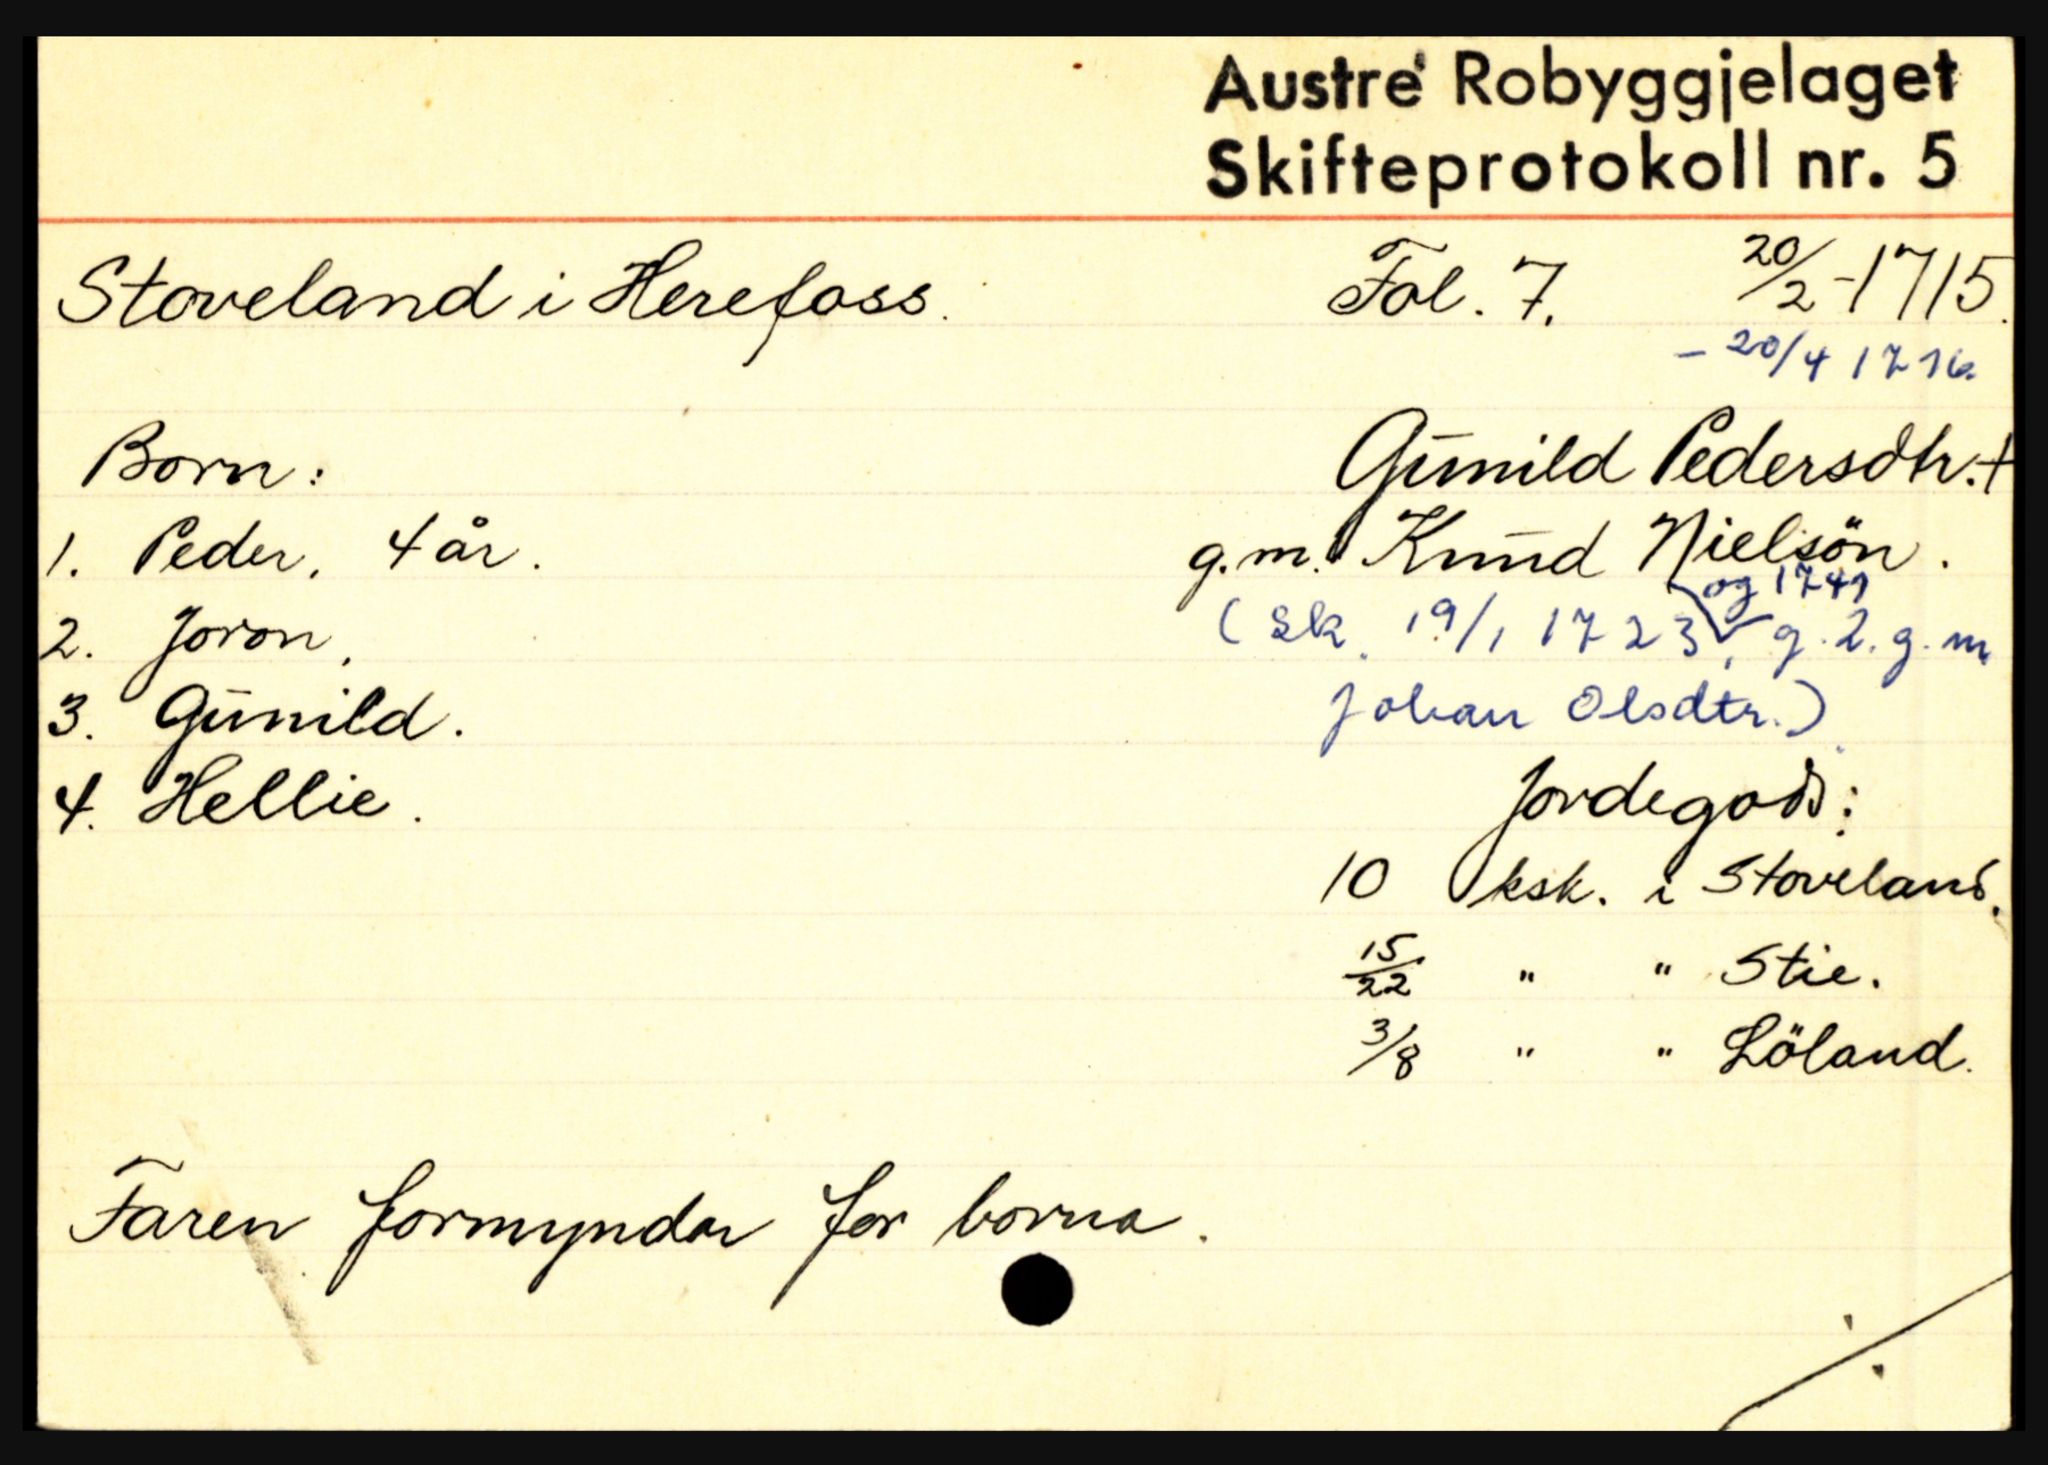 Austre Robyggjelaget
Skifteprotokoll nr. 5
Stoveland i Herefoss. Fol. 7. 20/2-1715.
- 20/4 1716.
Born: Gŭnild Pedersdtr. +
1. Peder, 4 år. g.m. Knŭd Nielsön.
og 1741
2. Joron, (Sk. 19/1 1723, g. 2. g. m.
3. Gŭnild. Johan Olsdtr.)
4. Hellie. Jordegods:
10 ksk. i Stoveland.
15/22 " " Stie.
3/8 " " Löland.
Faren formyndar for borna.